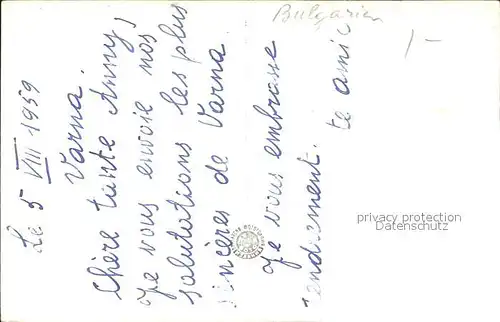 Bulgarien
/-
Le 5 VIII 1959
Varna.
Chère tante Anny,
Je vous envoie nos
salutations les plus
sincères de Varna.
Je vous embrasse
tendrement.
privacy protection
Datenschutz